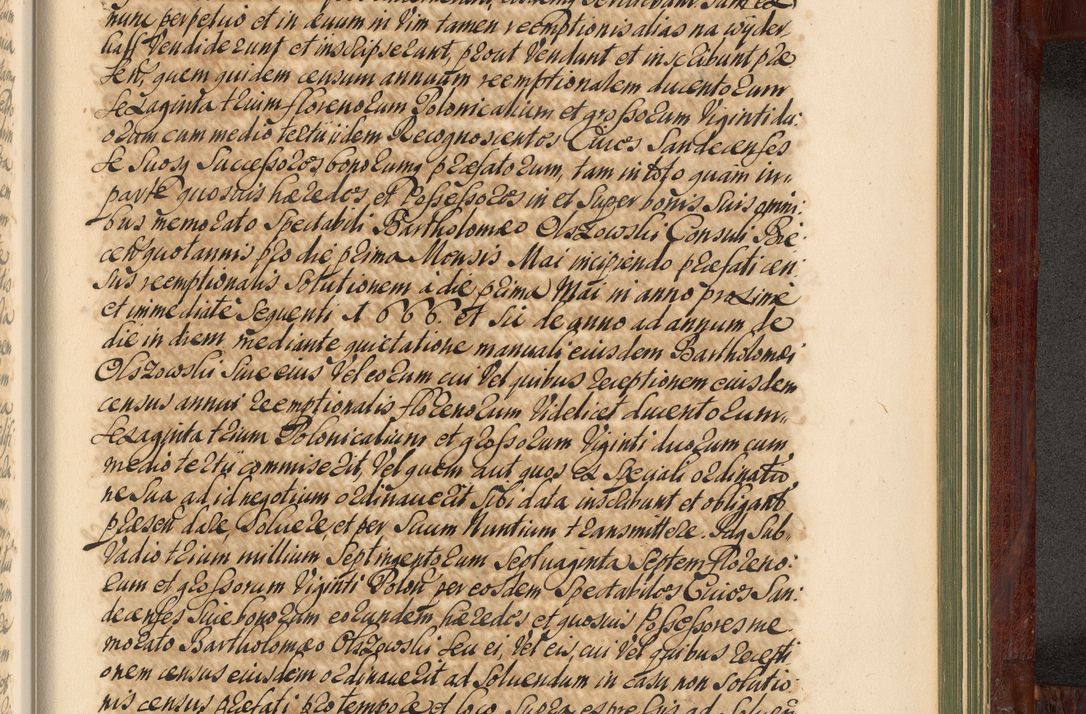 nunc perpetuo et in ævum in Vim tamen reemptionis alias na wyder
kaff Vendiderunt et inscripserunt, prout Vendunt et inscribunt præ
sen̄t, quem quidem censum annuum reemptionalem ducentorum
sexaginta trium florenorum Polonicalium et grossorum Viginti du:
orum cum medio tertii iidem Recognoscentes Cives Sandecenses
se suosq Successores, bonorumq præfatorum, tam in toto quam in
parte quosuis hæredes, et Possessores in et super bonis suis omni:
bus memorato Spectabili Bartholomæo Olszowski Consuli Bie:
cen̄ quotannis pro die prima Mensis Mai incipiendo præfati cen:
sus reemptionalis Solutionem à die prima Mai in anno proxime
et immediate Sequenti 1666 et sic de anno ad annum de
die in diem mediante quietatione manuali eiusdem Bartholomæi
Olszowski Siue eius Vel eorum cui Vel quibus receptionem eiusdem
census annui reemptionalis florenorum Videlicet ducentorum
sexaginta trium Polonicalium et grossorum Viginti duorum cum
medio tertii commiserit, Vel quem aut quos ex speciali ordinatio
ne sua ad id negotium ordinauerit sibi dari inscribunt et obligant
præsen̄ dare, soluere, et per suum Nuntium transmittere. Idq Sub
Vadio trium millium Septingentorum Septuaginta Septem floreno:
rum et grossorum Viginti Polon̄ per eosdem Spectabiles Ciues San:
decenses Siue bonorum eorundem hæredes et quosuis Possessores me
morato Bartholomæo Olszowski seu ei, Vel eis, cui Vel quibus recepti
onem census eiusdem ordinauerit ad soluendum in casu non Solutio
nis census præfati pro tempore et loco supra expressis ad